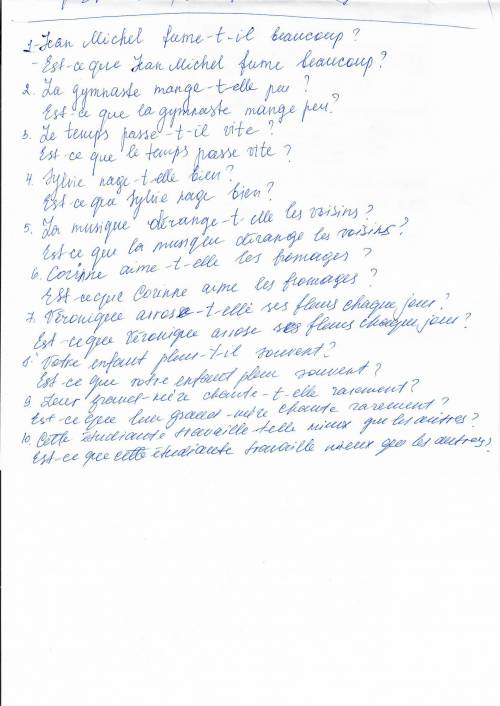 1- Jean Michel fume-t-il beaucoup ?
- Est-ce que Jean Michel fume beaucoup ?
2. La gymnaste mange-t-elle peu ?
Est-ce que la gymnaste mange peu ?
3. Le temps passe-t-il vite ?
Est-ce que le temps passe vite ?
4. Sylvie nage-t-elle bien ?
Est-ce que Sylvie nage bien ?
5. La musique dérange-t-elle les voisins ?
Est-ce que la musique dérange les voisins ?
6. Corinne aime-t-elle les fromages ?
Est-ce que Corinne aime les fromages ?
7. Véronique arrose-t-elle ses fleurs chaque jour ?
Est-ce que Véronique arrose ses fleurs chaque jour ?
8. Votre enfant pleur-t-il souvent ?
Est-ce que votre enfant pleur souvent ?
9. Leur grand-mère chante-t-elle rarement ?
Est-ce que leur grand-mère chante rarement ?
10. Cette étudiante travaille-t-elle mieux que les autres ?
Est-ce que cette étudiante travaille mieux que les autres ?